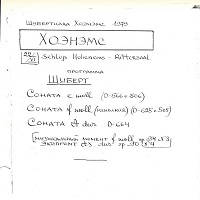 ШУБЕРТИАДА ХОЭНЭМС 1979
ХОЭНЭМС
22/VI Schloß Hohenems - Rittersaal
ПРОГРАММА
ШУБЕРТ
СОНАТА e moll (D-566 и 506)
СОНАТА f moll (D-625 и 505)
СОНАТА A dur D-664
МУЗЫКАЛЬНЫЙ МОМЕНТ f moll op 94 №3
ЭКСПРОМТ As dur op 90 №4